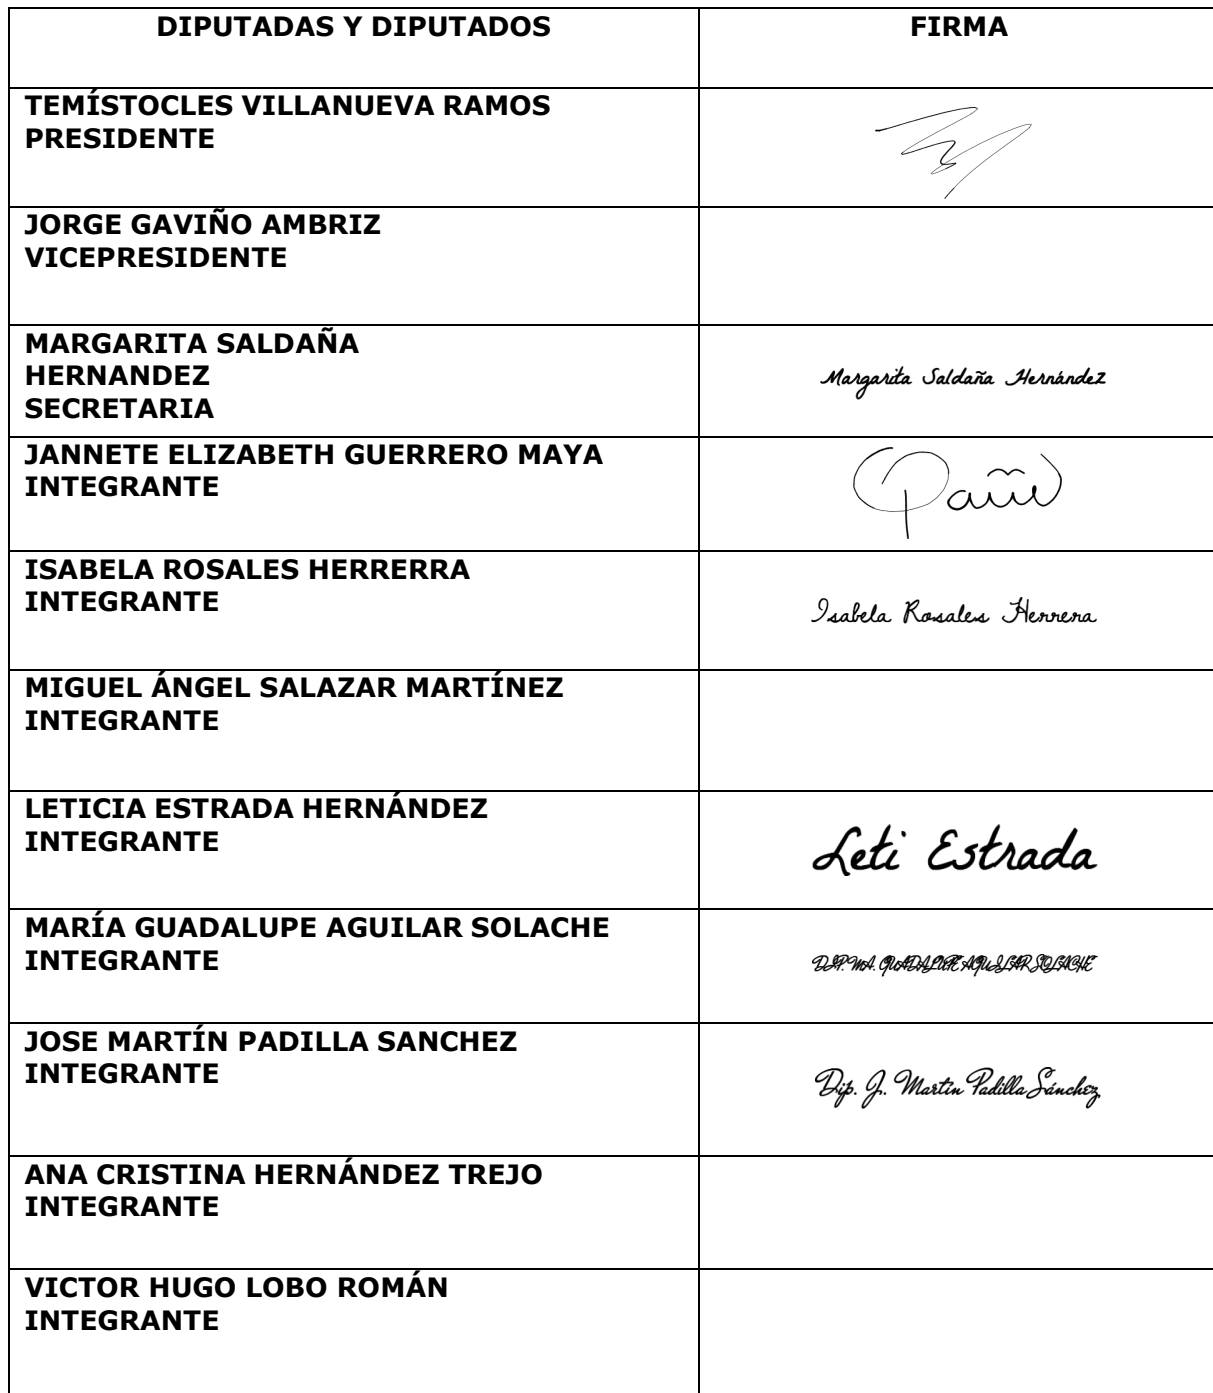 DIPUTADAS Y DIPUTADOS FIRMA
TEMÍSTOCLES VILLANUEVA RAMOS
PRESIDENTE
JORGE GAVIÑO AMBRIZ
VICEPRESIDENTE
MARGARITA SALDAÑA
HERNANDEZ
SECRETARIA
Margarita Saldaña Hernández
JANNETE ELIZABETH GUERRERO MAYA
INTEGRANTE
ISABELA ROSALES HERRERRA
INTEGRANTE
Isabela Rosales Herrera
MIGUEL ÁNGEL SALAZAR MARTÍNEZ
INTEGRANTE
LETICIA ESTRADA HERNÁNDEZ
INTEGRANTE
Leti Estrada
MARÍA GUADALUPE AGUILAR SOLACHE
INTEGRANTE
DIP. MA. GUADALUPE AGUILAR SOLACHE
JOSE MARTÍN PADILLA SANCHEZ
INTEGRANTE
Dip. J. Martín Padilla Sánchez
ANA CRISTINA HERNÁNDEZ TREJO
INTEGRANTE
VICTOR HUGO LOBO ROMÁN
INTEGRANTE